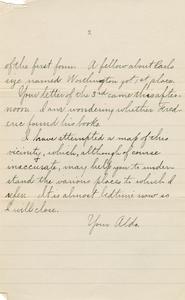 2
of the first four. A fellow about Carls
size named Worthington got 1st place.
Your letter of the 3rd came this after-
noon. I am wondering whether Fred-
eric found his books.
I have attempted a map of this
vicinity, which, although of course
inaccurate, may help you to under-
stand the various places to which I
refer. It is almost bedtime now so
I will close.
Your Alda.